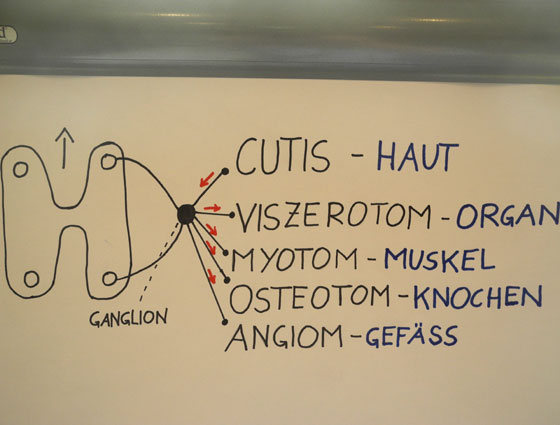 CUTIS - HAUT
VISZEROTOM - ORGAN
MYOTOM - MUSKEL
OSTEOTOM - KNOCHEN
ANGIOM - GEFÄSS
GANGLION